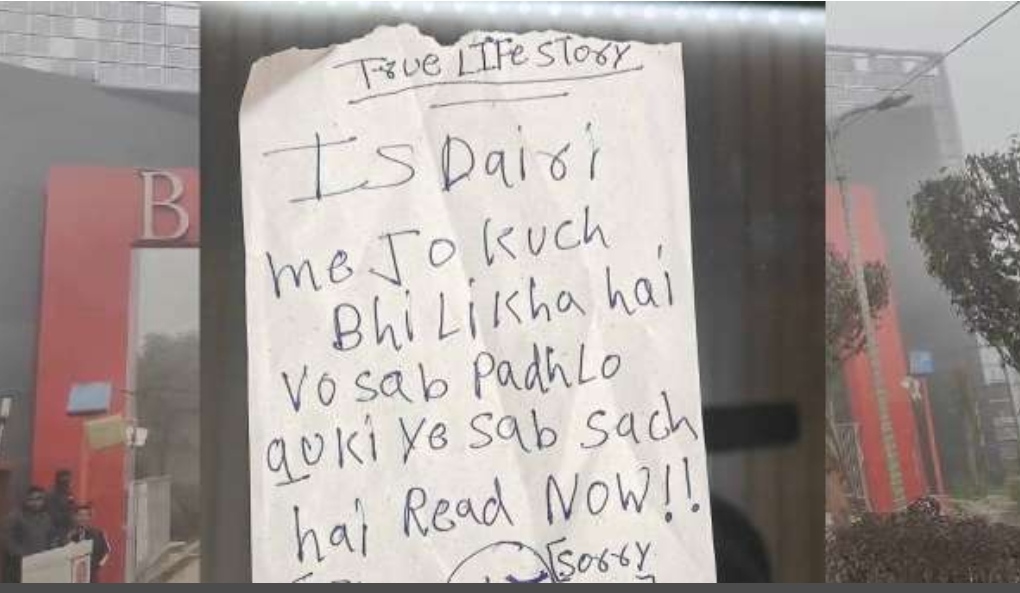 B
True LIFe STORY
IS Dairi
me Jo kuch
Bhi Likha hai
Vo sab PadhLo
quki Ye sab sach
hai Read NOW!!
[Sorry